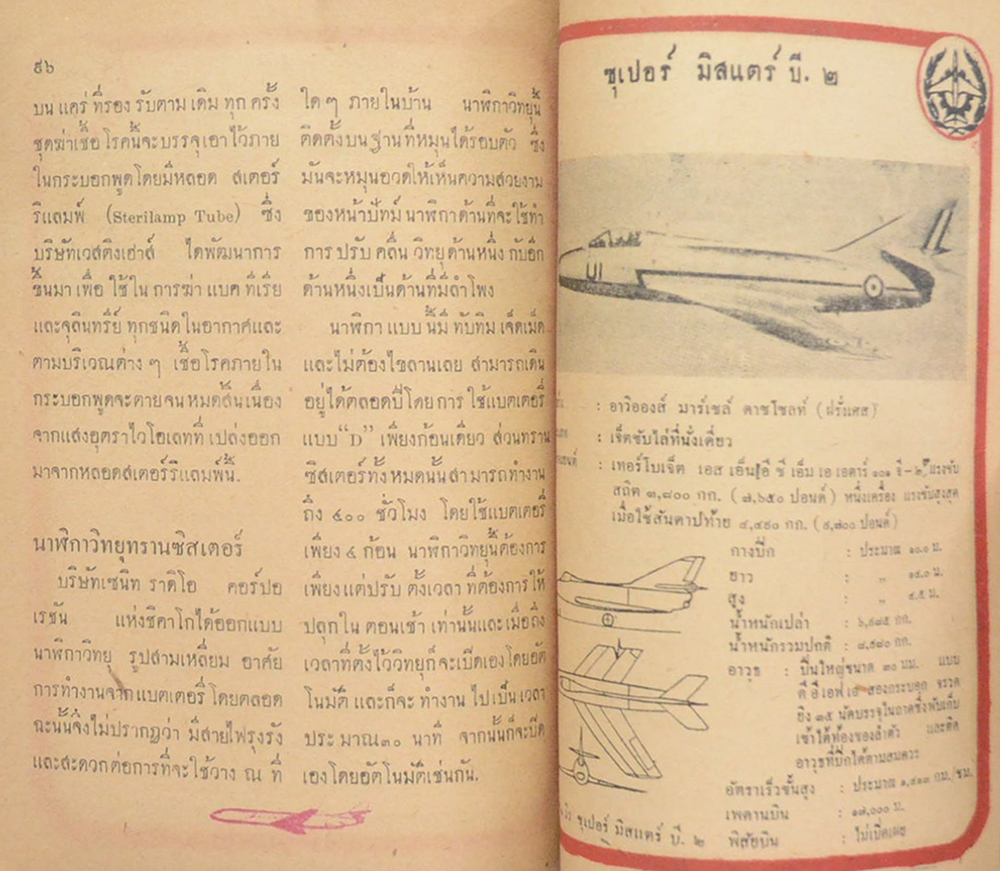 ๕๖
บนแคร่ที่รองรับตามเดิมทุกครั้ง
ชุดฆ่าเชื้อโรคนี้จะบรรจุเอาไว้ภาย
ในกระบอกพูดโดยมีหลอด สเตอร์
ริแลมพ์ (Sterilamp Tube) ซึ่ง
บริษัทเวสติงเฮ้าส์ ได้พัฒนาการ
ขึ้นมาเพื่อใช้ในการฆ่าแบคทีเรีย
และจุลินทรีย์ทุกชนิดในอากาศและ
ตามบริเวณต่างๆ เชื้อโรคภายใน
กระบอกพูดจะตายจนหมดสิ้นเนื่อง
จากแสงอุตราไวโอเลทที่เปล่งออก
มาจากหลอดสเตอร์ริแลมพ์นี้.
นาฬิกาวิทยุทรานซิสเตอร์
บริษัทเซนิท ราดิโอ คอร์ปอ
เรชัน แห่งชิคาโกได้ออกแบบ
นาฬิกาวิทยุ รูปสามเหลี่ยม อาศัย
การทำงานจากแบตเตอรี่โดยตลอด
ฉะนั้นจึงไม่ปรากฏว่า มีสายไฟรุงรัง
และสะดวกต่อการที่จะใช้วาง ณ ที่
ใดๆ ภายในบ้าน นาฬิกาวิทยุนี้
ติดตั้งบนฐานที่หมุนได้รอบตัว ซึ่ง
มันจะหมุนอวดให้เห็นความสวยงาม
ของหน้าปัทม์นาฬิกาด้านที่จะใช้ทำ
การปรับคลื่นวิทยุด้านหนึ่ง กับอีก
ด้านหนึ่งเป็นด้านที่มีลำโพง
นาฬิกาแบบนี้มีทับทิมเจ็ดเม็ด
และไม่ต้องไขลานเลย สามารถเดิน
อยู่ได้ตลอดปีโดยการใช้แบตเตอรี่
แบบ "D" เพียงก้อนเดียว ส่วนทราน
ซิสเตอร์ทั้งหมดนั้นสามารถทำงาน
ถึง ๕๐๐ ชั่วโมง โดยใช้แบตเตอรี่
เพียง ๔ ก้อน นาฬิกาวิทยุนี้ต้องการ
เพียงแต่ปรับตั้งเวลาที่ต้องการให้
ปลุกในตอนเช้าเท่านั้นและเมื่อถึง
เวลาที่ตั้งไว้วิทยุก็จะเปิดเองโดยอัต
โนมัติ และก็จะทำงานไปเป็นเวลา
ประมาณ ๓๐ นาที จากนั้นก็จะปิด
เองโดยอัตโนมัติเช่นกัน.
ซุเปอร์ มิสแตร์ บี. ๒
U1
: อาวิอองส์ มาร์เซล์ ดาซโซลท์ (ฝรั่งเศส)
: เจ็ตขับไล่ที่นั่งเดี่ยว
: เทอร์โบเจ็ต เอส เอ็น อี ซี เอ็ม เอ เอตาร์ ๑๐๑ จี-๒ แรงขับ
สถิต ๓,๘๐๐ กก. (๗,๖๕๐ ปอนด์) หนึ่งเครื่อง แรงขับสูงสุด
เมื่อใช้สันดาปท้าย (๙,๗๐๐ ปอนด์)
กางปีก : ประมาณ ๑๐.๐ ม.
ยาว : ,, ๑๔.๐ ม.
สูง : ,, ๔.๕ ม.
น้ำหนักเปล่า : กก.
น้ำหนักรวมปกติ : กก.
อาวุธ : ปืนใหญ่ขนาด ๓๐ มม. แบบ
ดี อี เอฟ เอ สองกระบอก จรวด
ยิง ๓๕ นัดบรรจุในถาดซึ่งพับเก็บ
เข้าใต้ท้องของลำตัว และติด
อาวุธที่ปีกได้ตามสมควร
อัตราเร็วขั้นสูง : ประมาณ กม./ชม.
เพดานบิน : ๑๗,๐๐๐ ม.
พิสัยบิน : ไม่เปิดเผย
ซุเปอร์ มิสแตร์ บี. ๒